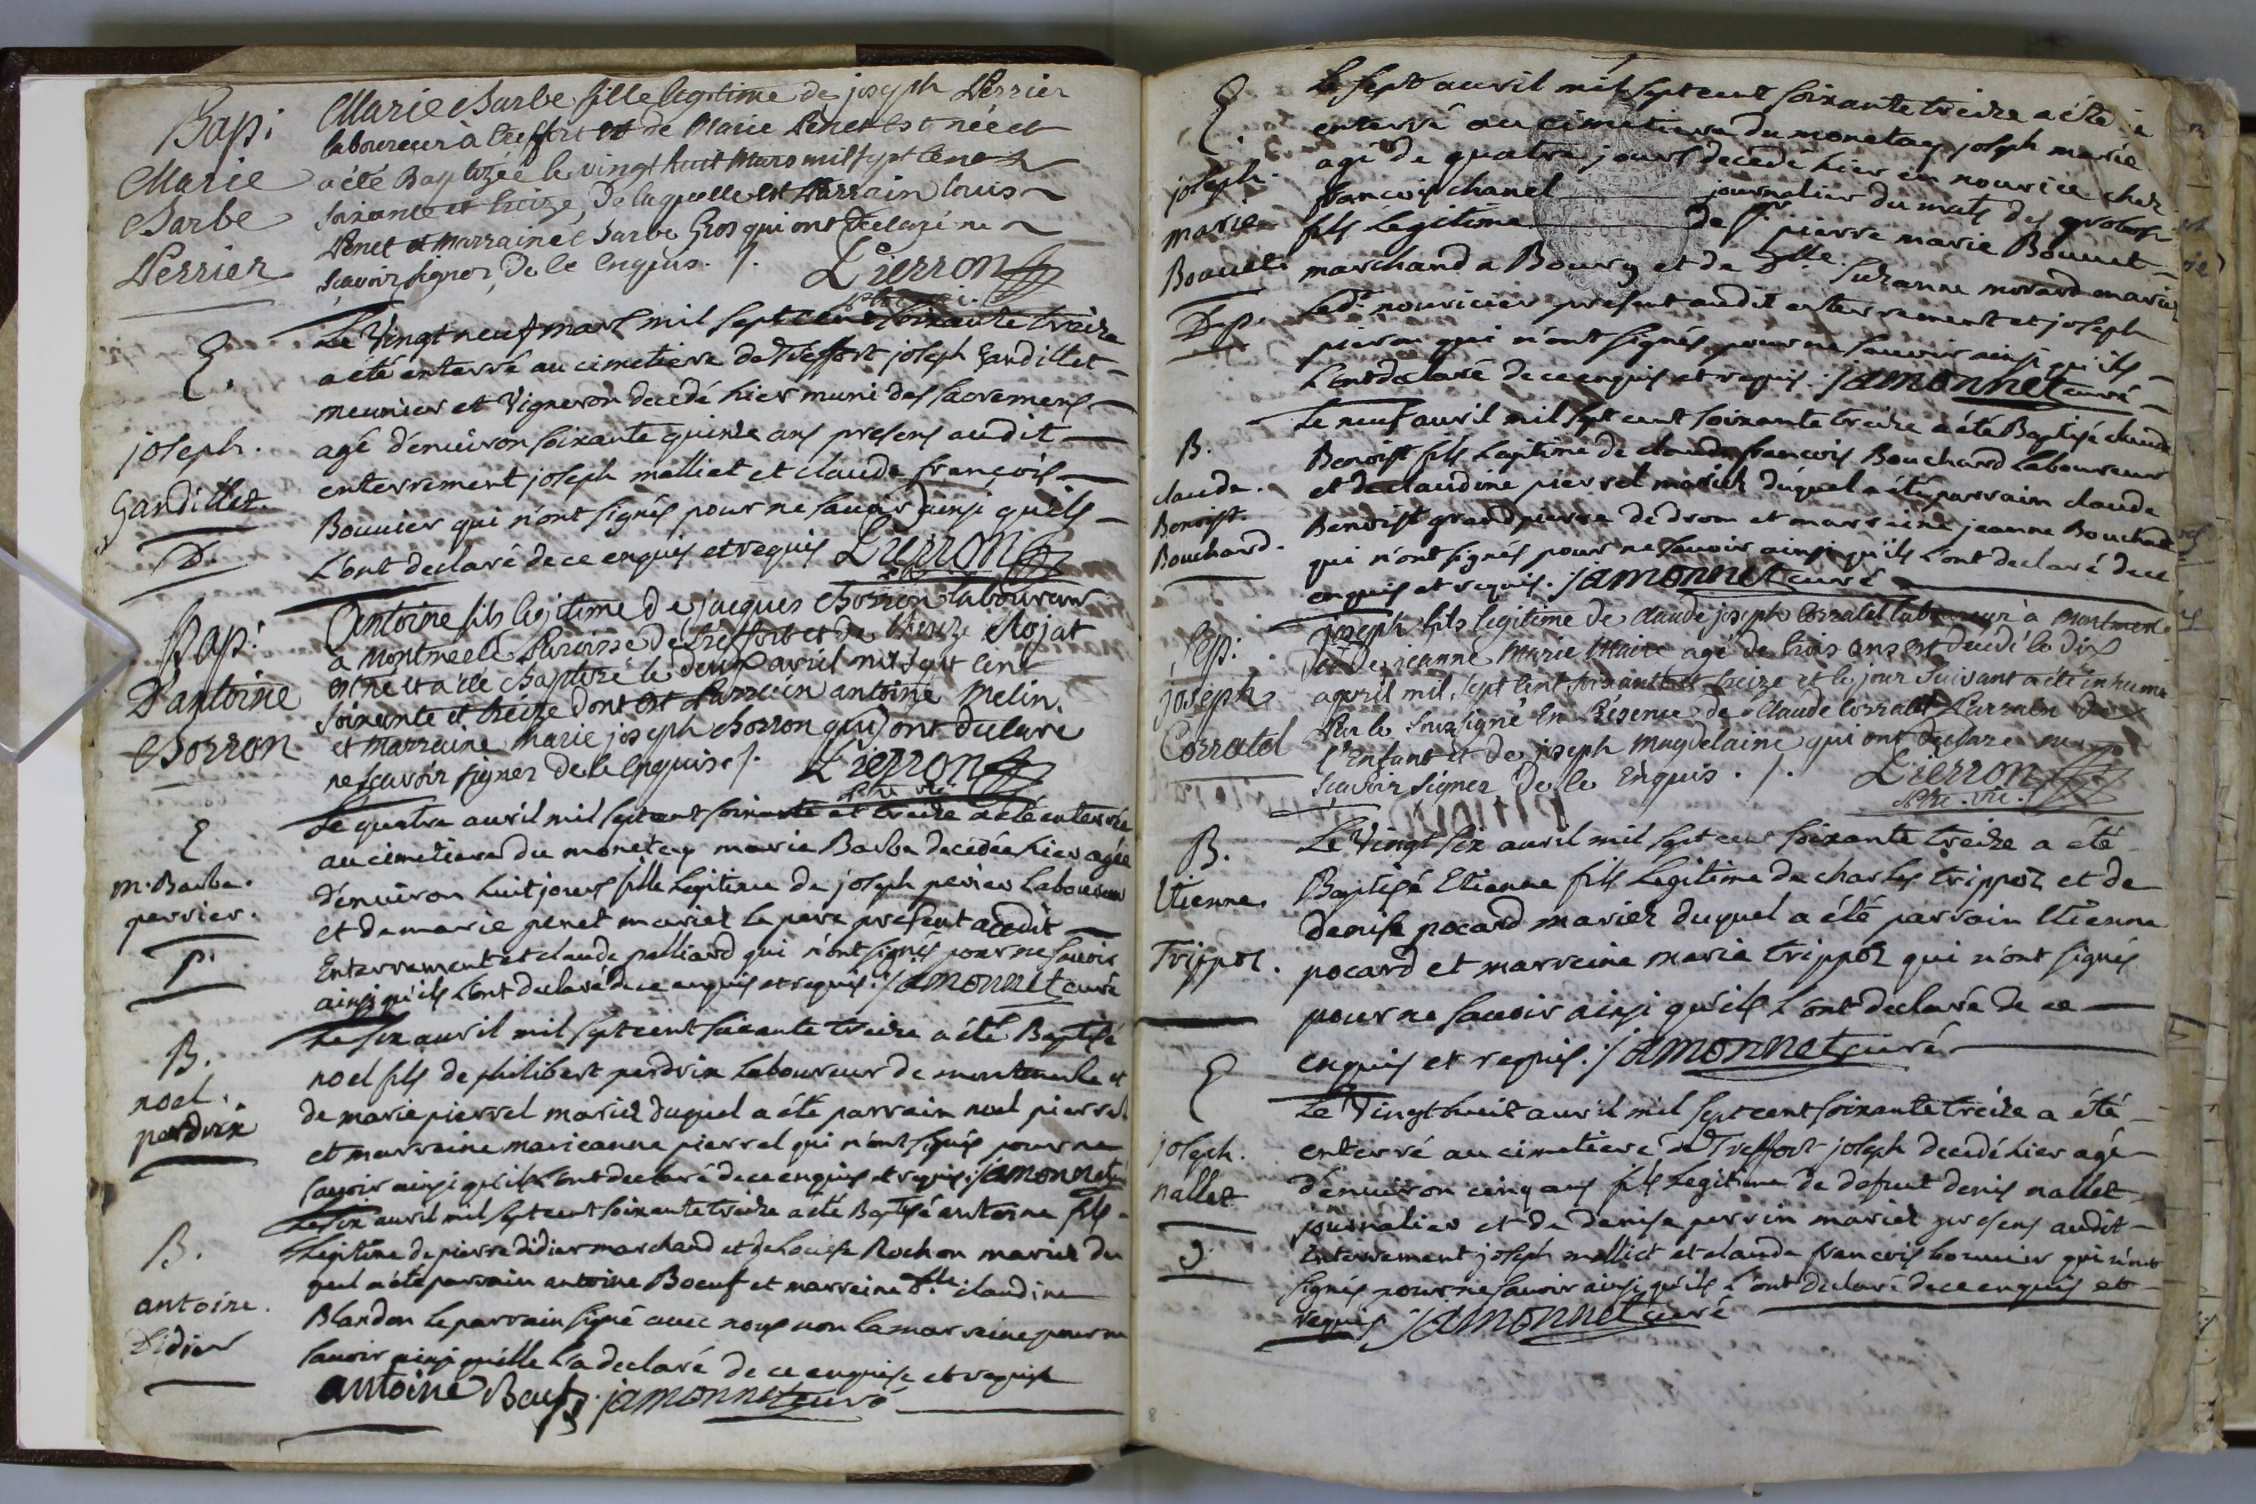 Bapi
Marie
Barbe
Perrier
Marie Barbe fille legitime de joseph Perrier
laboureur à treffort et de Marie Penet est née et
a été Baptizée le vingt huit Mars mil sept cent
soixante et treize, De laquelle est Parrain louis
Penet et Marraine Barbe Gros qui ont declaré ne
scavoir signer, de ce enquis ./. Pierron
E.
joseph.
Gandillet.
D.
Le Vingt neuf mars mil sept cent soixante treize
a été enterré au cimetiere de Treffort joseph Gandillet
meunier et Vigneron decedé hier muni des sacremens
agé d'enuiron soixante quinze ans presens audit
enterrement joseph molliet et claude françois
Bouuier qui n'ont signés pour ne sauoir ainsi qu'ils
l'ont declaré de ce enquis et requis Pierron
Bap:
D'antoine
Borron
Antoine fils legitime de jacques Borron laboureur
a Montmerle Paroisse de treffort et de Rojat
est né et a été Baptizé le deux avril mil sept cent
soixante et treize dont est Parrain antoine Melin
et Marraine Marie joseph Borron qui ont declare
ne scavoir signer de ce enquis ./. Pierron
ptre vic.
E
m. Barbe.
perrier.
P.
Le quatre auril mil sept cent soixante et treize a été enterrée
au cimetiere du monetay marie Barbe decedée hier agée
d'enuiron huit jours fille legitime de joseph perier laboureur
et de marie penet mariés le pere present audit
Enterrement et claude palliard qui n'ont signés pour ne sauoir
ainsi qu'ils l'ont declaré de ce enquis et requis. jamonnet curé
B.
noel.
perdrix
Le six auril mil sept cent soixante treize a été Baptisé
noel fils de philibert perdrix laboureur de montmerle et
de marie pierrel mariés duquel a été parrain noel pierrel
et marraine marieanne pierrel qui n'ont signés pour ne
sauoir ainsi qu'ils l'ont declaré de ce enquis et requis. jamonnet
B.
antoine.
Didier
Le six auril mil sept cent soixante treize a été Baptisé antoine fils
legitime de pierre didier marchand et de Louise Rochon mariés du
quel a été parrain antoine Boeuf et marraine d.lle claudine
Blandon le parrain signé auec nous non la marraine pour ne
sauoir ainsi qu'elle l'a declaré de ce enquise et requise
antoine Beuf jamonnet curé
E.
joseph.
marie
Bouuet
D.p.
Le sept auril mil sept cent soixante treize a été
enterré au cimetiere du monetay joseph marie
agé de quatre jours decedé hier en nourice chez
francois chanel journalier du mats des
fils legitime de Sr pierre marie Bouuet
marchand a Bourg et de D.lle Suzanne morard mariés
Led. nouricier present audit enterrement et joseph
pieron qui n'ont signés pour ne sauoir ainsi qu'ils
l'ont declaré de ce enquis et requis. jamonnet curé
B.
claude.
Benoist.
Bouchard.
Le neuf auril mil sept cent soixante treize a été Baptisé claude
Benoist fils legitime de claude francois Bouchard laboureur
et de claudine pierrel mariés duquel a été parrain claude
Benoist grandpierre de drom et marraine jeanne Bouchard
qui n'ont signés pour ne sauoir ainsi qu'ils l'ont declaré de ce
enquis et requis. jamonnet curé
Sep:
joseph
Corratel
joseph fils legitime de claude joseph Corratel laboureur à Montmerle
et De jeanne Marie Maire agé de trois ans est decedé le dix
avril mil sept cent soixante et treize et le jour suivant a été inhumé
Par le soussigné En Présence de Claude Corratel Parrain de
l'Enfant et de joseph Magdelaine qui ont declaré ne
scavoir signer de ce enquis ./. Pierron
ptre. vic.
B.
Etienne.
Trippoz.
Le Vingt six auril mil sept cent soixante treize a été
Baptisé Etienne fils legitime de charles trippoz et de
denise pocard mariés duquel a été parrain Etienne
pocard et marreine marie trippoz qui n'ont signés
pour ne sauoir ainsi qu'ils l'ont declaré de ce
enquis et requis. jamonnet curé
E
joseph.
nallet
J.
Le Vingt huit auril mil sept cent soixante treize a été
enterré au cimetiere de Treffort joseph decedé hier agé
d'enuiron cinq ans fils legitime de defunt denis nallet
journalier et de denise perrin mariés presens audit
Enterrement joseph molliet et claude francois bouuier qui n'ont
signés pour ne sauoir ainsi qu'ils l'ont declaré de ce enquis et
requis jamonnet curé
8